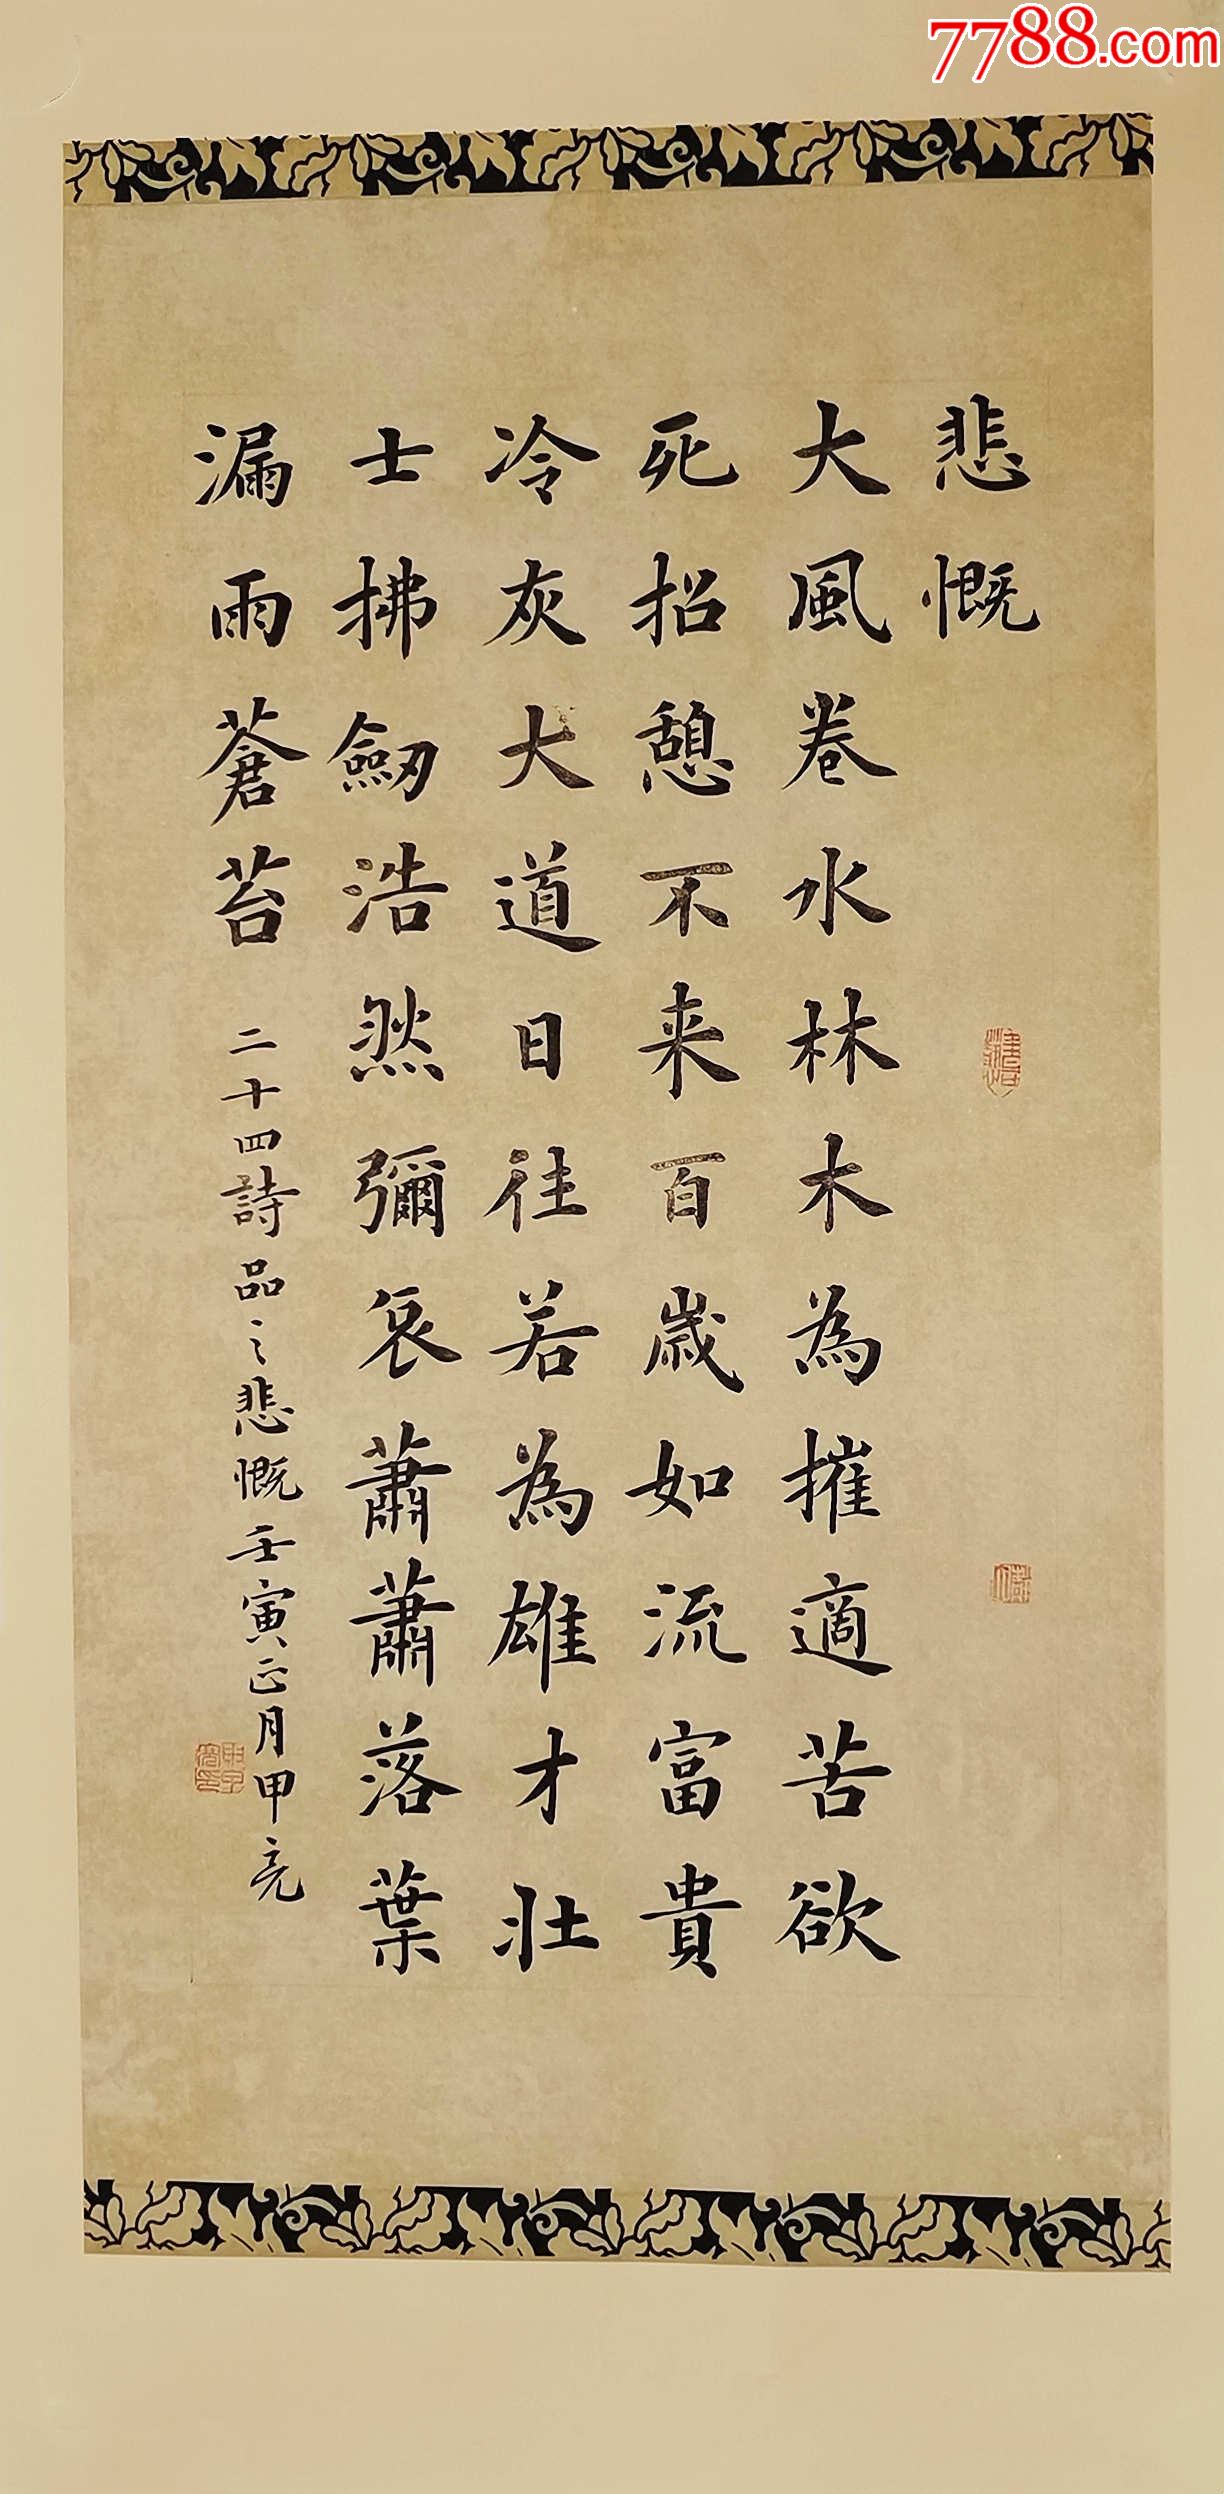 7788.com
悲慨
大風卷水林木為摧適苦欲
死招憩不来百歲如流富貴
冷灰大道日往若為雄才壯
士拂劒浩然彌哀蕭蕭落葉
漏雨蒼苔
二十四詩品之悲慨壬寅正月甲亮